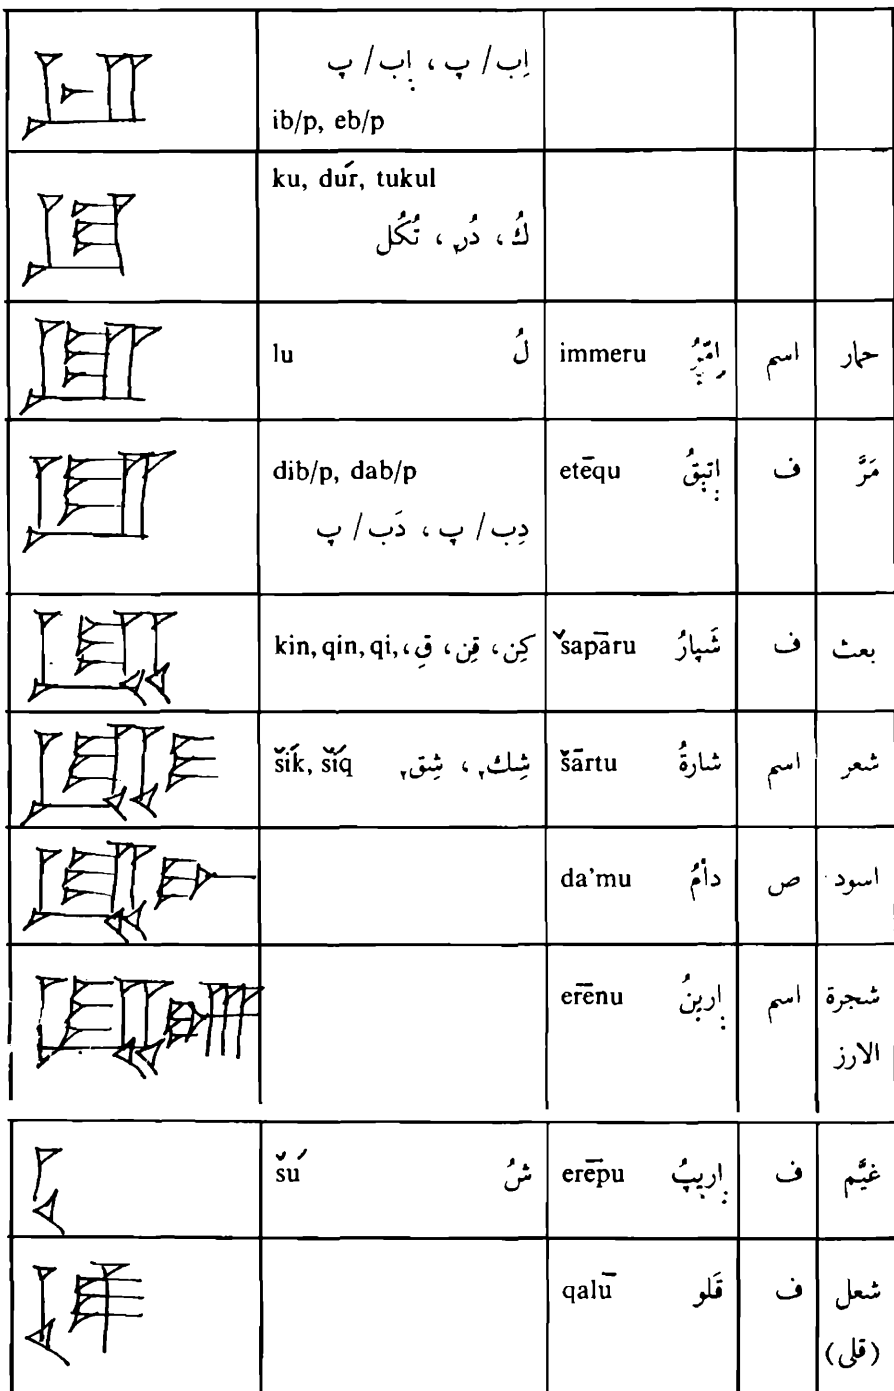 اِب / پ ، اِٻ / پ
ib/p, eb/p
ku, dúr, tukul
كُ ، دُر ، تُكُل
lu لُ immeru اِمّيرُ اسم حمار
dib/p, dab/p etēqu اِتيقُ ف مَرَّ
دِب / پ ، دَب / پ
kin, qin, qi, كِن ، قِن ، قِ ، šapāru شَپارُ ف بعث
šík, šíq شِك ، شِق šārtu شارةُ اسم شعر
da'mu دأمُ ص اسود
erēnu اِرينُ اسم شجرة
الارز
šú شُ erēpu اِريپُ ف غيَّم
qalū قَلو ف شعل
(قلى)